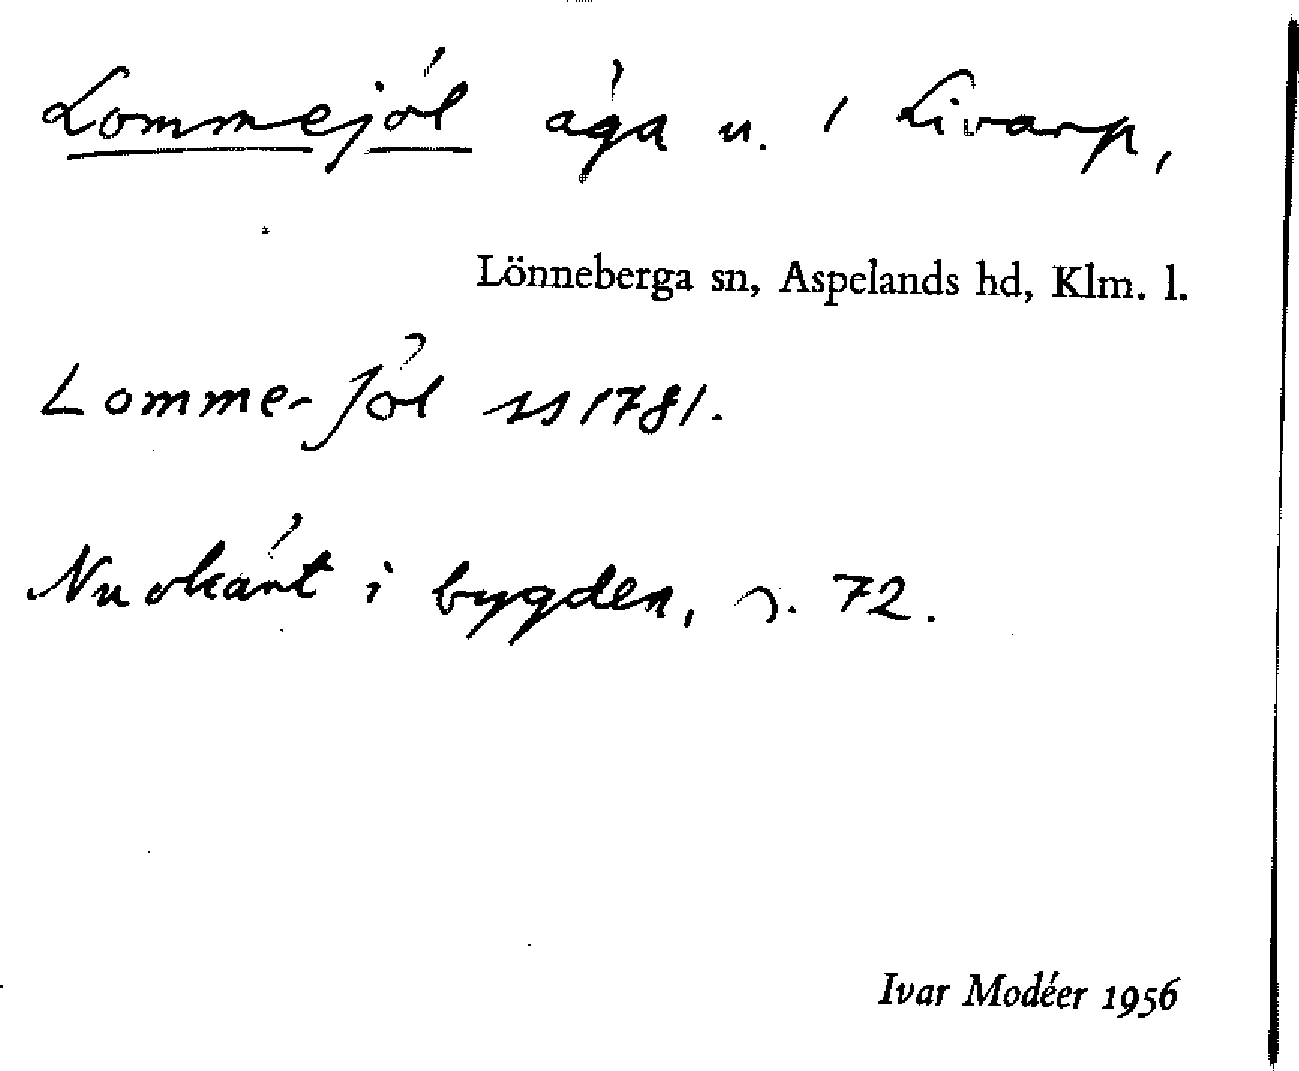 Lommejól åga u. 1 Livarp,
Lönneberga sn, Aspelands hd, Klm. l.
Lomme-Jól ss 1781.
Nu okänt i bygden, s. 72.
Ivar Modéer 1956